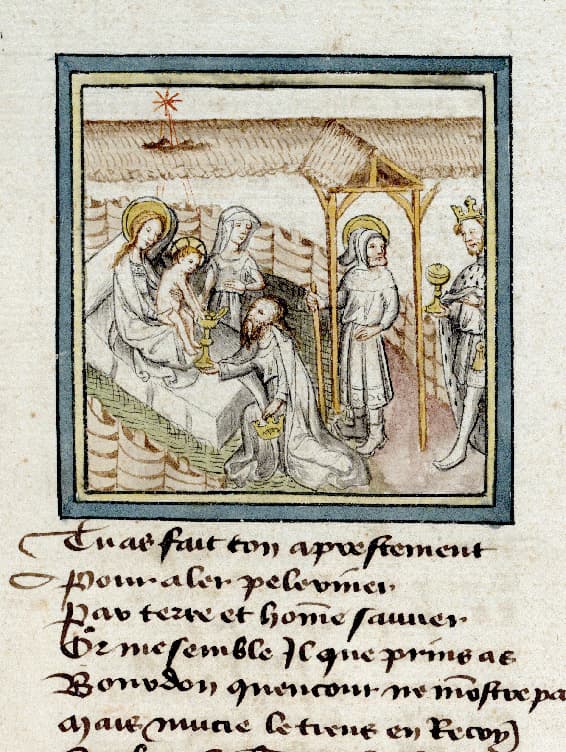 Tu as fait ton aprestement
Pour aler peleriner
Par terre et hom̄e sauuer
Or me semble Il que prins as
Bourdon quencour ne mōstre pa
Mais mucie le tiens en Recoy